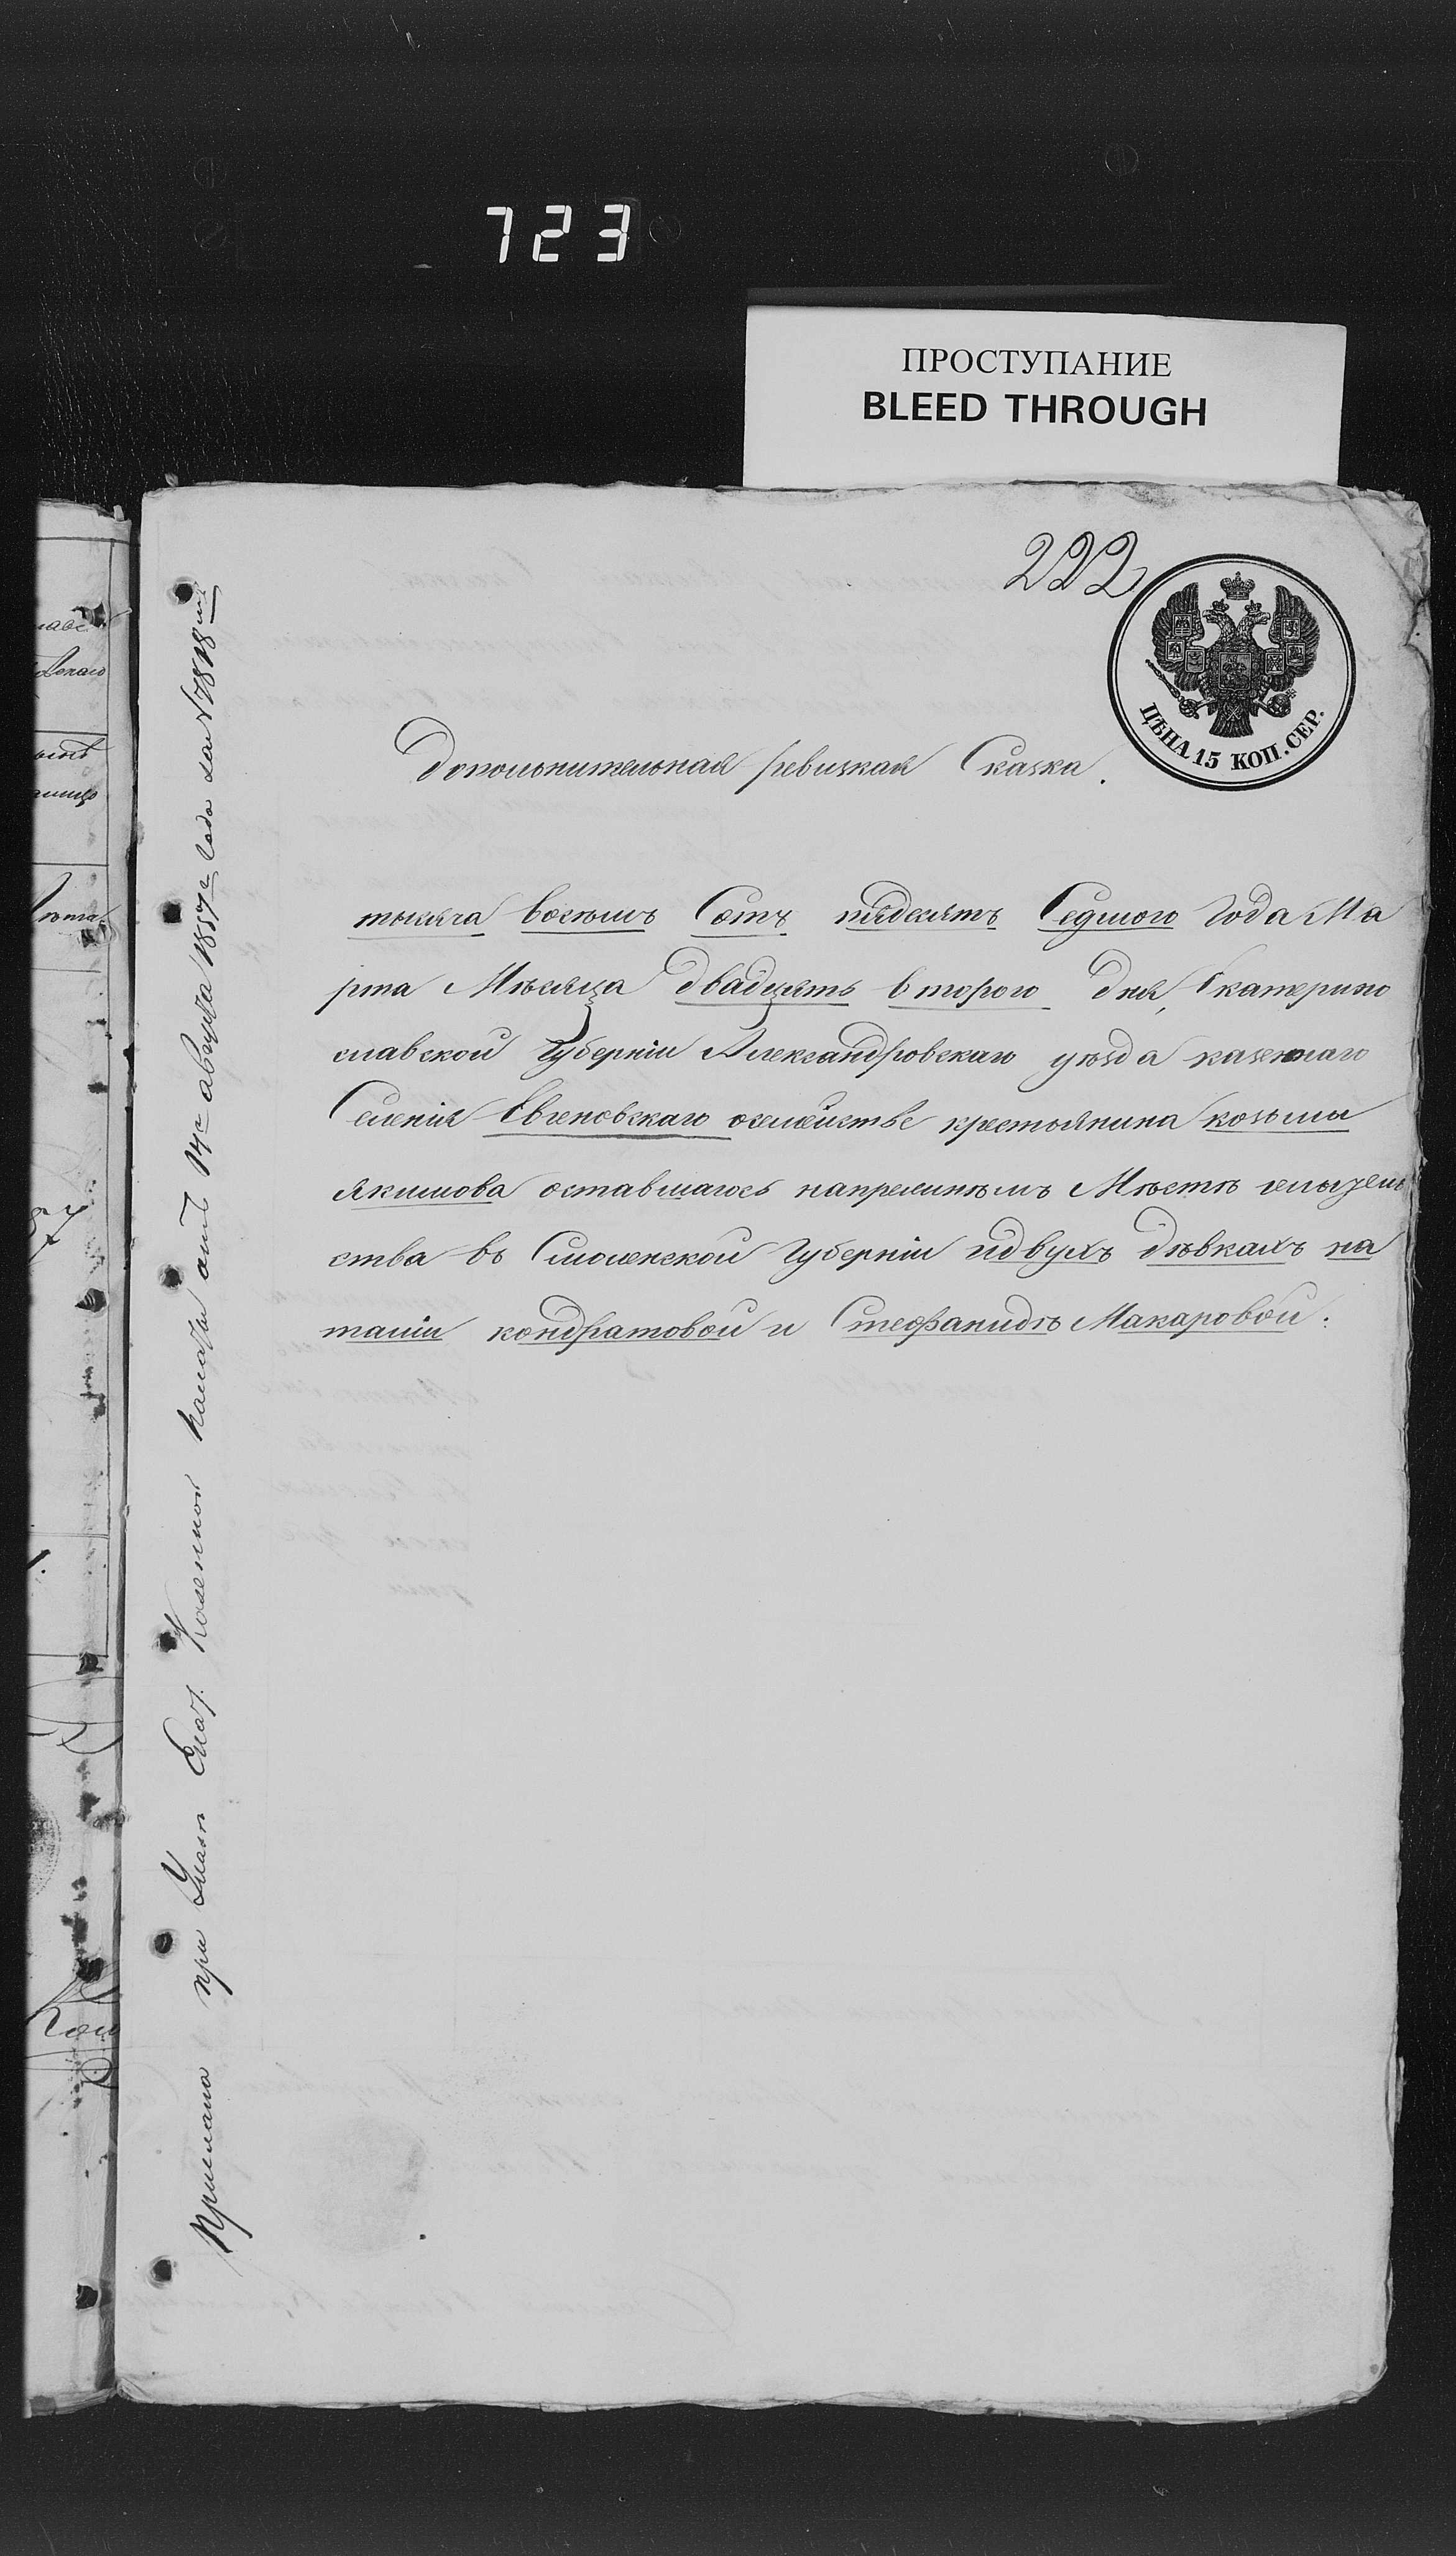 723
ПРОСТУПАНИЕ
BLEED THROUGH
222
ЦѢНА 15 КОП. СЕР.
Дополнительная ревизкая Сказка.
тысяча восемъ Сотъ пядесятъ Седмого Года Ма
рта Мѣсяца двадцять второго Дня, Екатерино
славской Губерніи Александровскаго уѣзда казеннаго
Селенія Евгеновскаго осемействе крестьянина козьмы
Якимова оставшагося напрежнѣмъ Мѣстѣ жытель
ства въ Смоленской Губерніи идвухъ дѣвкахъ на
таліи кондратовой и Стефанидѣ Макаровой.
Прислана при Указѣ Екат. Казенной палаты отъ 14го августа 1857го года за №7818мъ